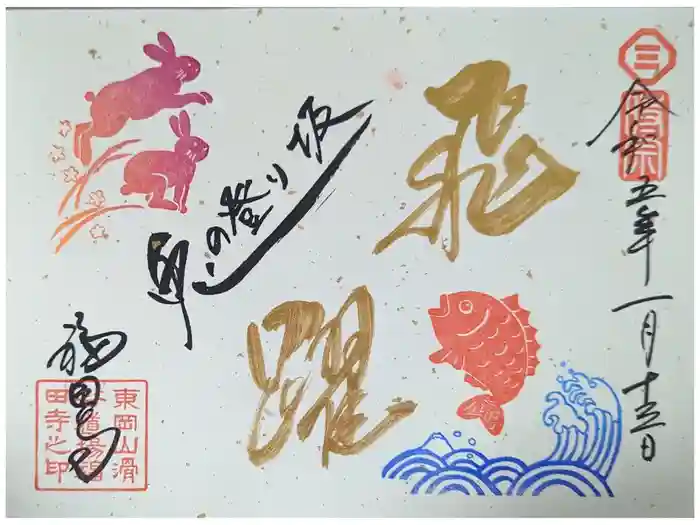 三
令和五年一月十五日
飛
躍
卯の登り坂
福田寺
東岡山滑
道場福
田寺之印